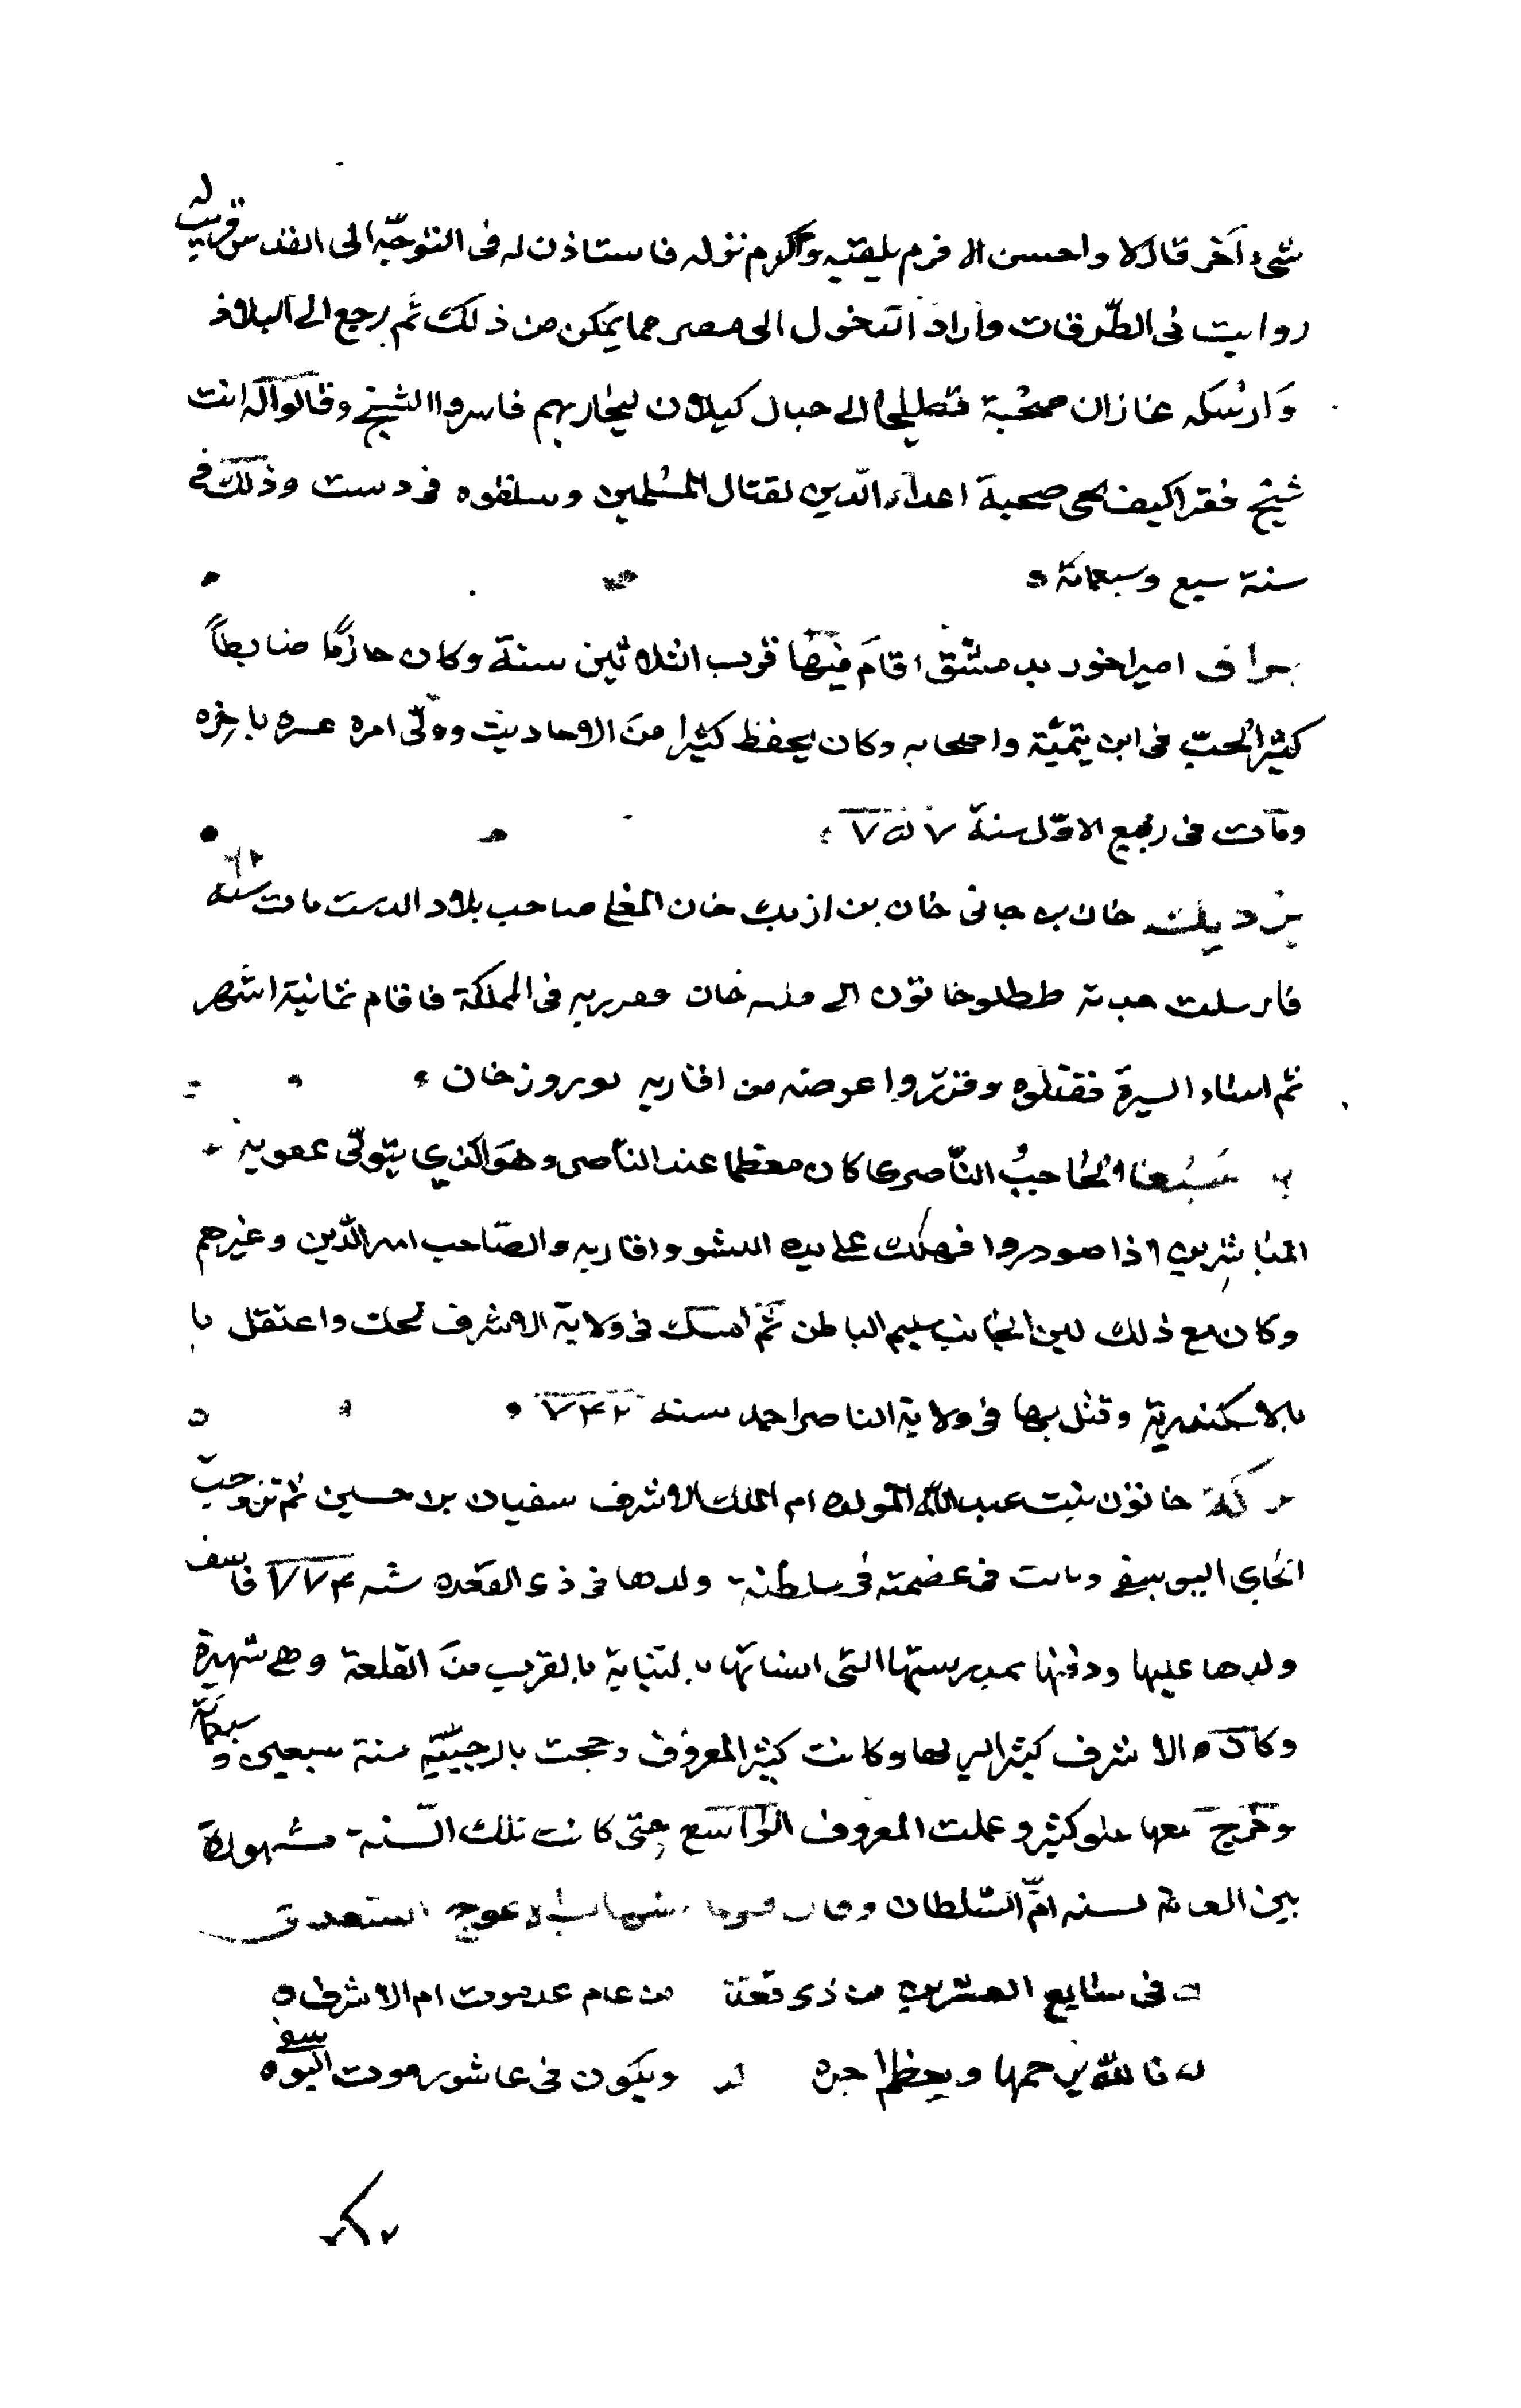 شيء آخر قال لا واحسن الافرم تلقيه واكرم نزله فاستاذن له في التوجه الى القدس فرتب له
رواتب في الطرقات واراد الدخول الى مصر فما يمكن من ذلك ثم رجع الى البلاد
وارسله غازان صحبة قطليجا الى جبال كيلان ليحاربهم فاسروا الشيخ وقالوا له انت
شيخ فقرا كيف تجي صحبة اعداء الدين لقتال المسلمين وسلقوه في دست وذلك في
سنة سبع وسبعمائة
امير اخور بدمشق اقام فيها قريب الثلاثين سنة وكان حازما ضابطاً
كثير الحب في ابن تيمية واصحابه وكان يحفظ كثيرا من الاحاديث وولي امرة عشرة باخره
ومات في ربيع الاول سنة ٧٥٧
بردبك خان بن جاني خان بن ازبك خان المغلي صاحب بلاد الدست مات سنة
فارسلت جدته ططلوخاتون الى خان في المملكة فاقام ثمانية اشهر
ثم اساء السيرة فقتلوه وقرروا عوضه من اقاربه نوروز خان
الحاجب الناصري كان معظما عند الناصر وهو الذي يتولى عقوبة
المباشرين اذا صودروا فهلك على يده النشو واقاربه والصاحب امين الدين وغيرهم
وكان مع ذلك لين الجانب سليم الباطن ثم امسك في ولاية الاشرف كجك واعتقل با
بالاسكندرية وقتل بها في ولاية الناصر احمد سنة ٧٤٢
بركة خاتون بنت عبد الله المولده ام الملك الاشرف سفيان بن حسين ثم تزوجت
الجاي اليوسفي وماتت في عصمته في سلطنة ولدها في ذي القعده سنة ٧٧٤ فاسف
ولدها عليها ودفنها بمدرستها التي انشاتها بالتبانة بالقرب من القلعة وهي شهيرة
وكان الاشرف كثير البر لها وكانت كثير المعروف وحجت بالرجبية سنة سبعين وسبعمائة
وخرج معها كثير وعملت المعروف الواسع حتى كانت تلك السنة مشهورة
بين العامة بسنه ام السلطان وقال شهاب الاعرج السعدي
في سابع العشرين من ذي قعدة من عام موت ام الاشرف
فالله يرحمها ويعظم اجره ويكون في عاشور موت اليوسفي